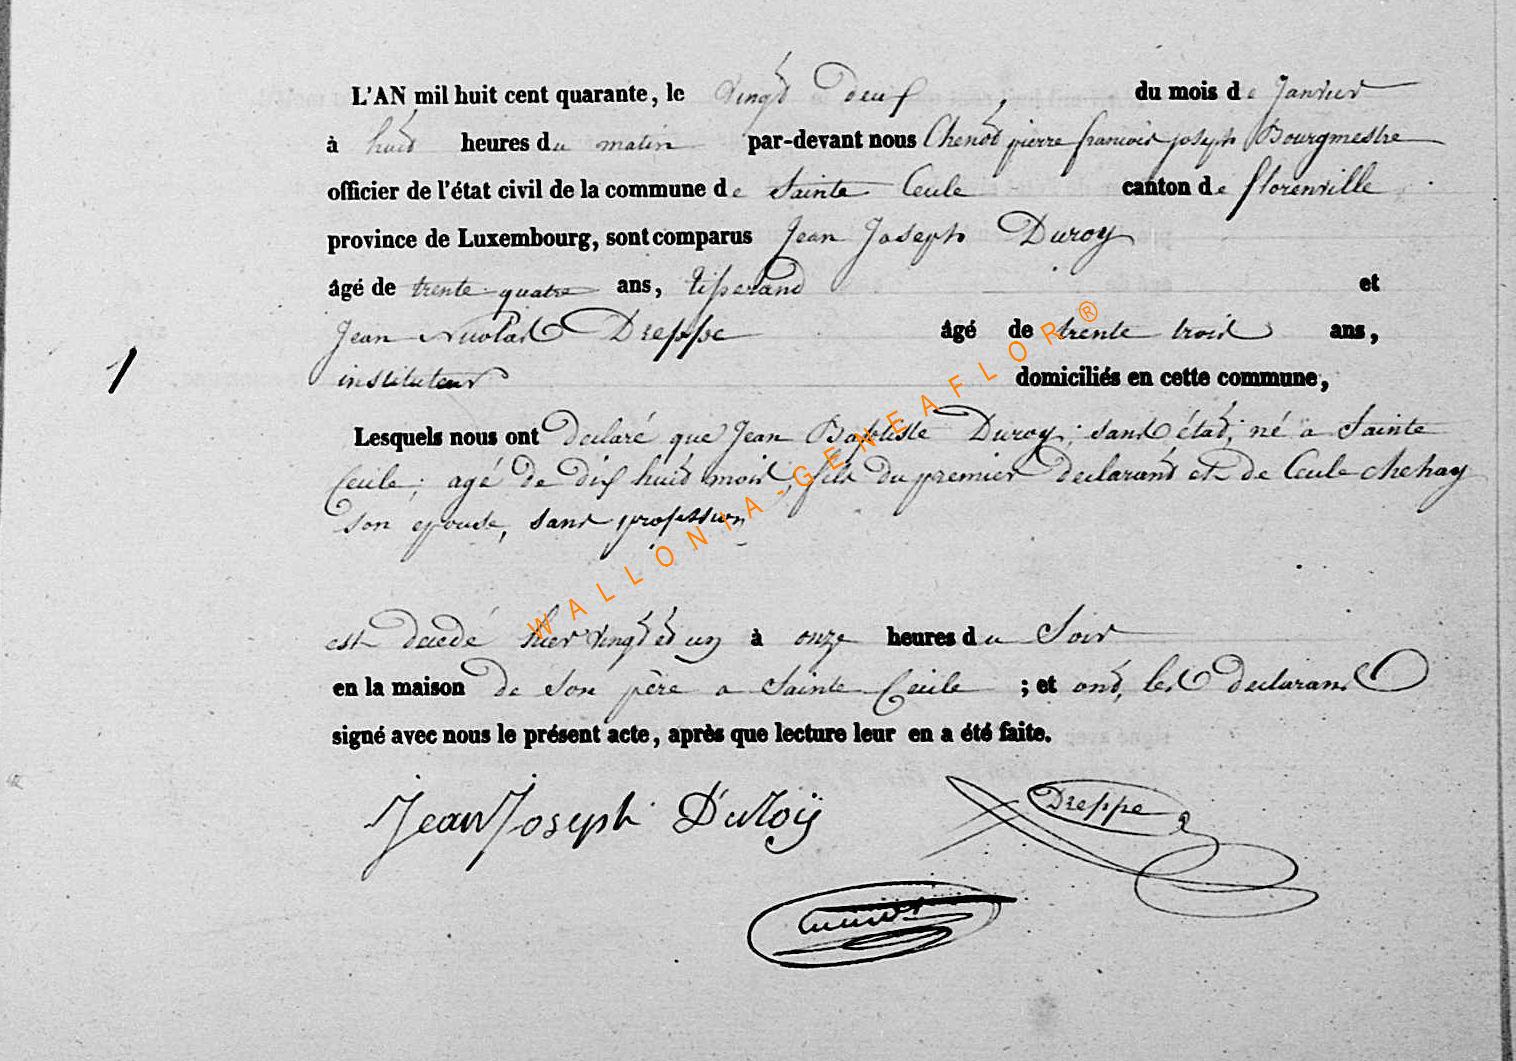 L'AN mil huit cent quarante, le vingt deux, du mois de Janvier
à huit heures du matin par-devant nous Chenot pierre francois joseph Bourgmestre
officier de l'état civil de la commune de Sainte Cecile canton de florenville
province de Luxembourg, sont comparus Jean Joseph Duroy
âgé de trente quatre ans, tisserand et
Jean Nicolas Dreppe âgé de trente trois ans,
1
instituteur domiciliés en cette commune,
Lesquels nous ont declaré que Jean Baptiste Duroy; sans état; né a Sainte
Cecile; agé de dix huit mois; fils du premier declarant et de Cecile chehay
son epouse, sans profession
est decedé hier vingt et un à onze heures du Soir
en la maison de son père a Sainte Cecile ; et ont, les declarans
signé avec nous le présent acte, après que lecture leur en a été faite.
Jean Joseph DuRoÿ Dreppe
WALLONIA-GENEAFLOR®